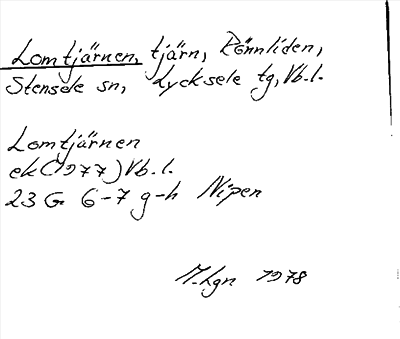 Lomtjärnen, tjärn, Rönnliden,
Stensele sn, Lycksele tg, Vb.l.
Lomtjärnen
ek (1977) Vb.l.
23 G 6-7 g-h Nipen
1978